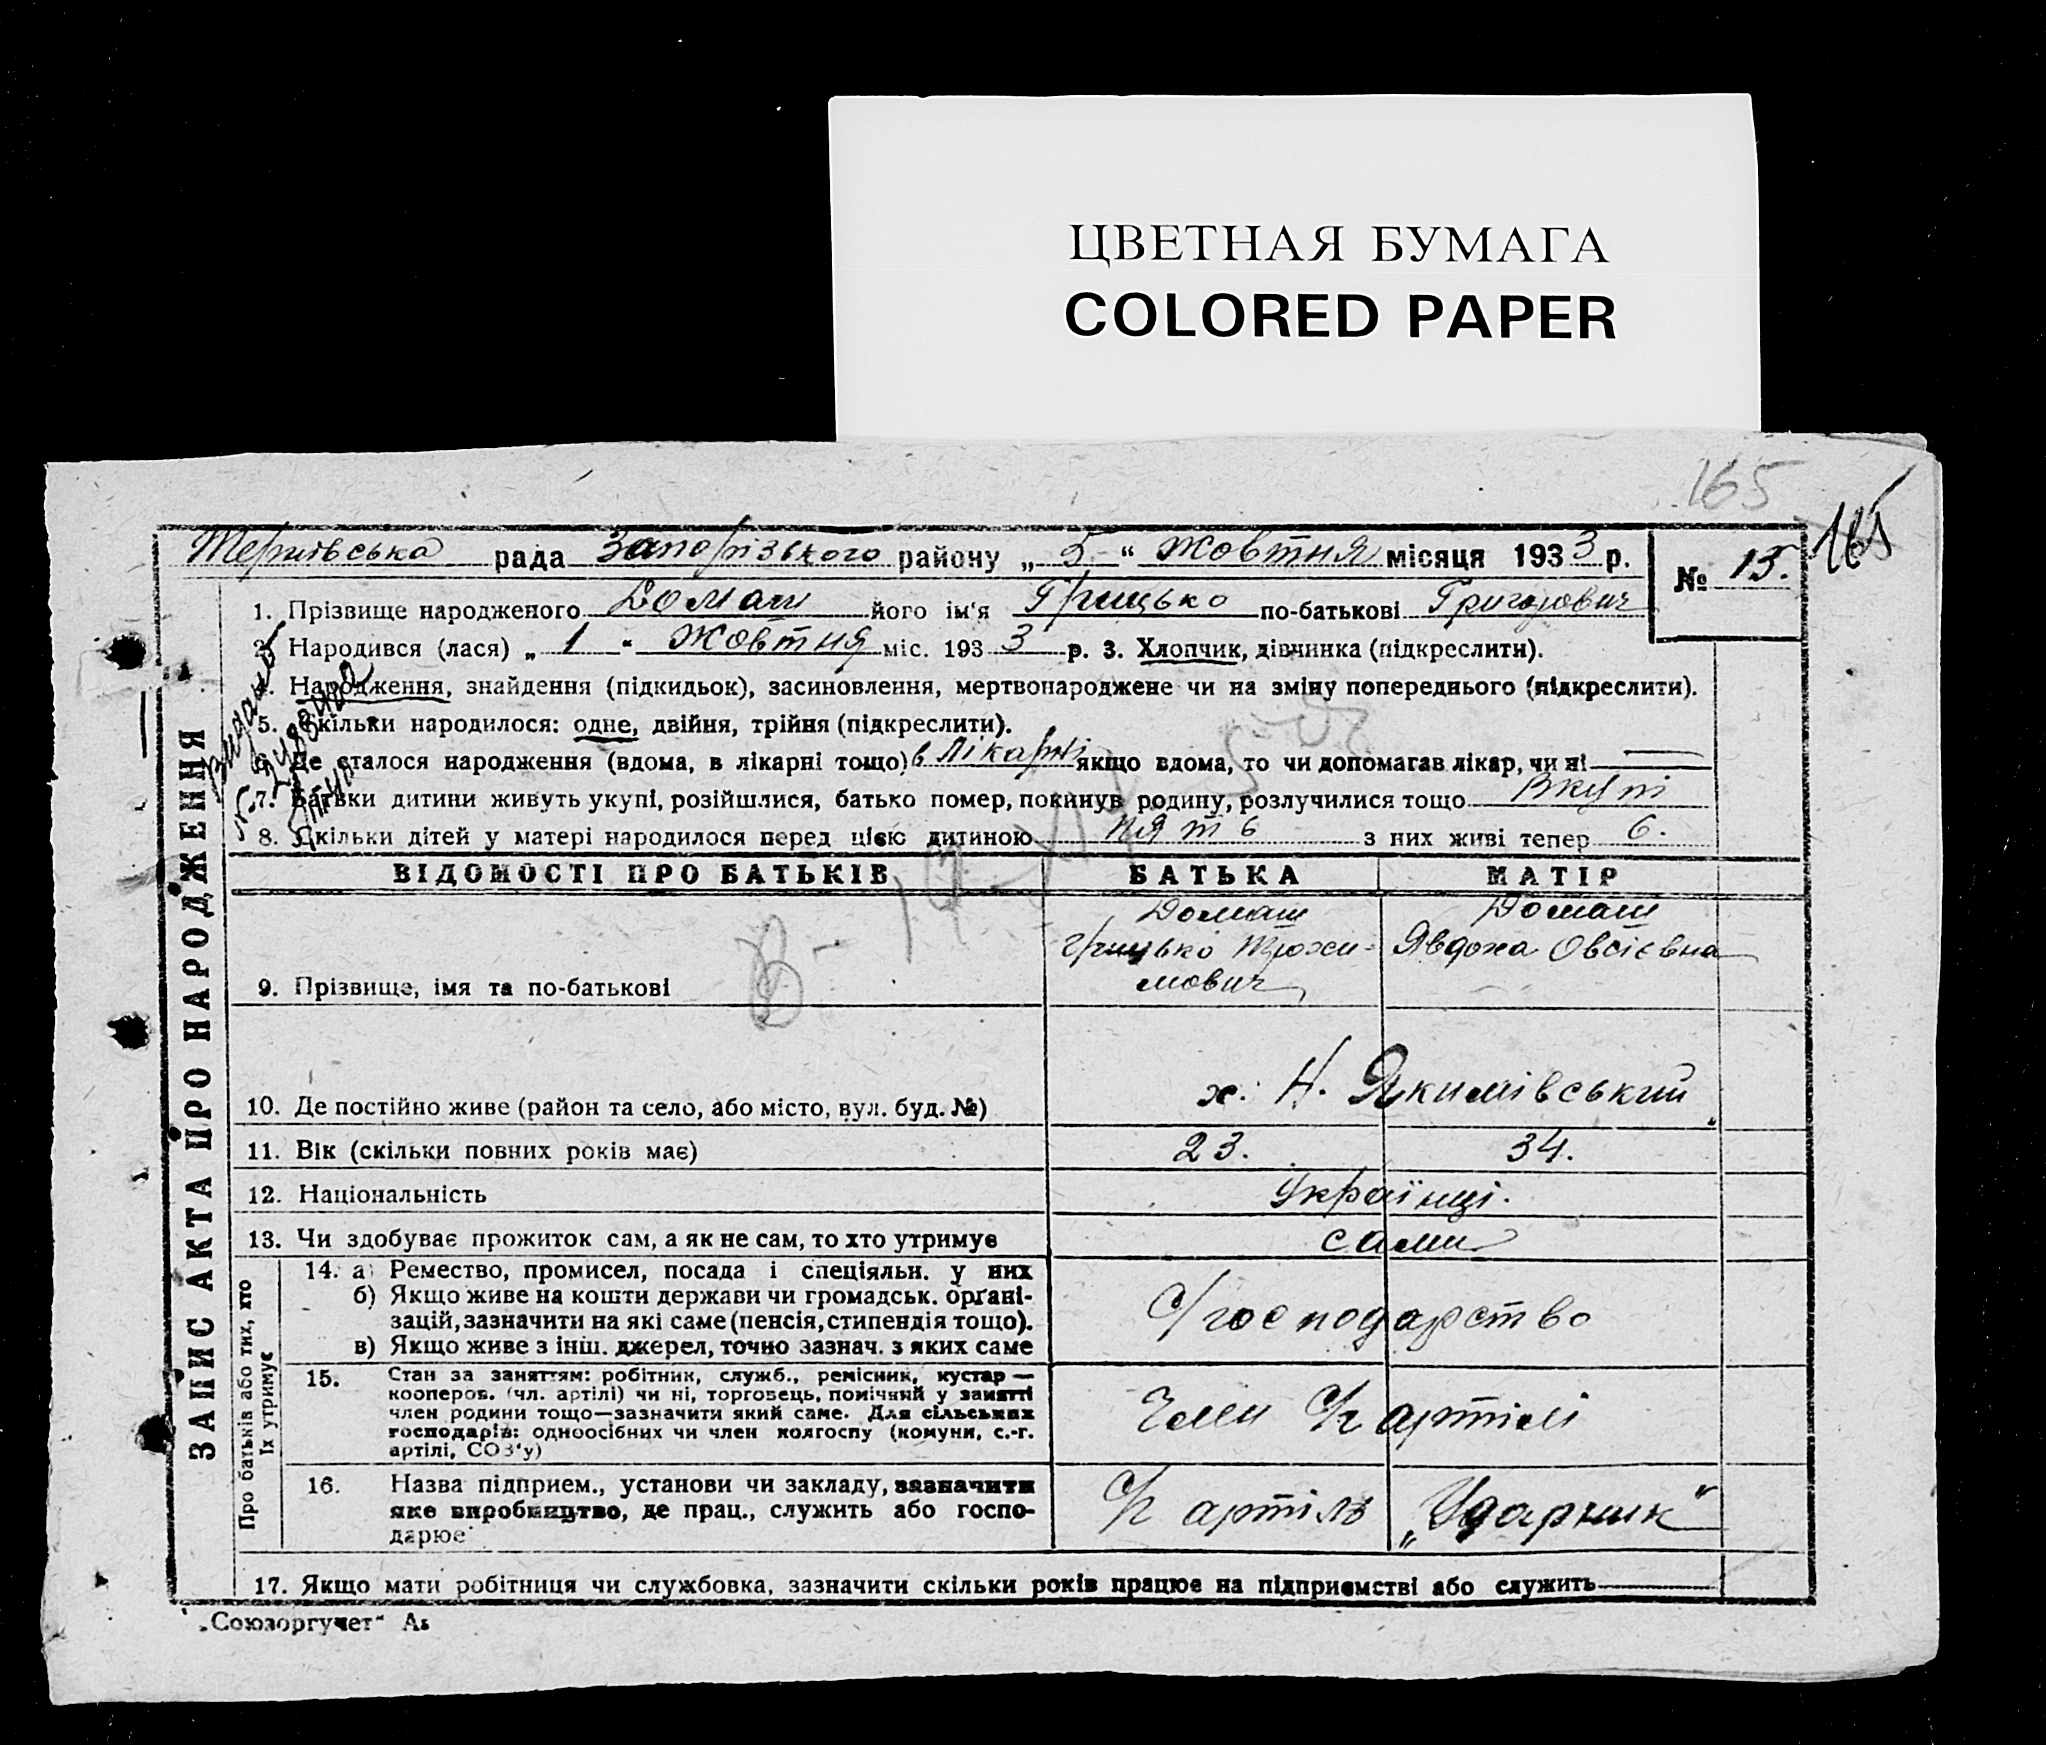 ЦВЕТНАЯ БУМАГА
COLORED PAPER
165
165
Тернівська рада Запорізького району „ 5 “ Жовтня місяця 1933 р.
№ 15.
1. Прізвище народженого Домаш його ім'я Грицько по-батькові Григорович
2. Народився (лася) „ 1 “ Жовтня міс. 193 3 р. 3. Хлопчик, дівчинка (підкреслити).
4. Народження, знайдення (підкидьок), засиновлення, мертвонароджене чи на зміну попереднього (підкреслити).
5. Скільки народилося: одне, двійня, трійня (підкреслити).
6. Де сталося народження (вдома, в лікарні тощо) в лікарні якщо вдома, то чи допомагав лікар, чи ні —
7. Батьки дитини живуть укупі, розійшлися, батько помер, покинув родину, розлучилися тощо Вкупі
8. Скільки дітей у матері народилося перед цією дитиною пять з них живі тепер 6.
ВІДОМОСТІ ПРО БАТЬКІВ БАТЬКА МАТІР
9. Прізвище, імя та по-батькові
Домаш
Грицько Трохи-
мович
Домаш
Явдоха Овсієвна
10. Де постійно живе (район та село, або місто, вул. буд. №) х. Н. Якимівський
11. Вік (скільки повних років має) 23. 34.
12. Національність Українці.
13. Чи здобуває прожиток сам, а як не сам, то хто утримує сами
Про батьків або тих, хто
їх утримує
14. а) Ремество, промисел, посада і спеціяльн. у них
б) Якщо живе на кошти держави чи громадськ. органі-
зацій, зазначити на які саме (пенсія, стипендія тощо).
в) Якщо живе з інш. джерел, точно зазнач. з яких саме
С/господарство
15. Стан за заняттям: робітник, служб., ремісник, кустар —
кооперов. (чл. артілі) чи ні, торговець, помічний у занятті
член родини тощо—зазначити який саме. Для сільських
господарів: одноосібних чи член колгоспу (комуни, с.-г.
артілі, СОЗ'у)
Член С/г артілі
16. Назва підприєм., установи чи закладу, зазначити
яке виробництво, де прац., служить або госпо-
дарює
С/г артіль „Ударник“
17. Якщо мати робітниця чи службовка, зазначити скільки років працює на підприємстві або служить —
ЗАПИС АКТА ПРО НАРОДЖЕННЯ
„Союзоргучет“